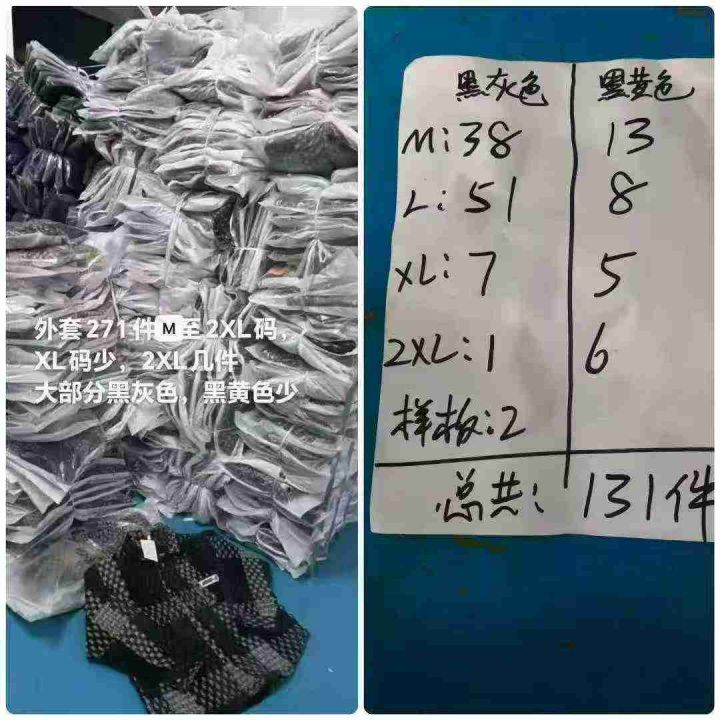 外套271件M至2XL码，
XL码少，2XL几件
大部分黑灰色，黑黄色少
黑灰色 黑黄色
M:38 13
L:51 8
XL:7 5
2XL:1 6
样板:2
总共:131件